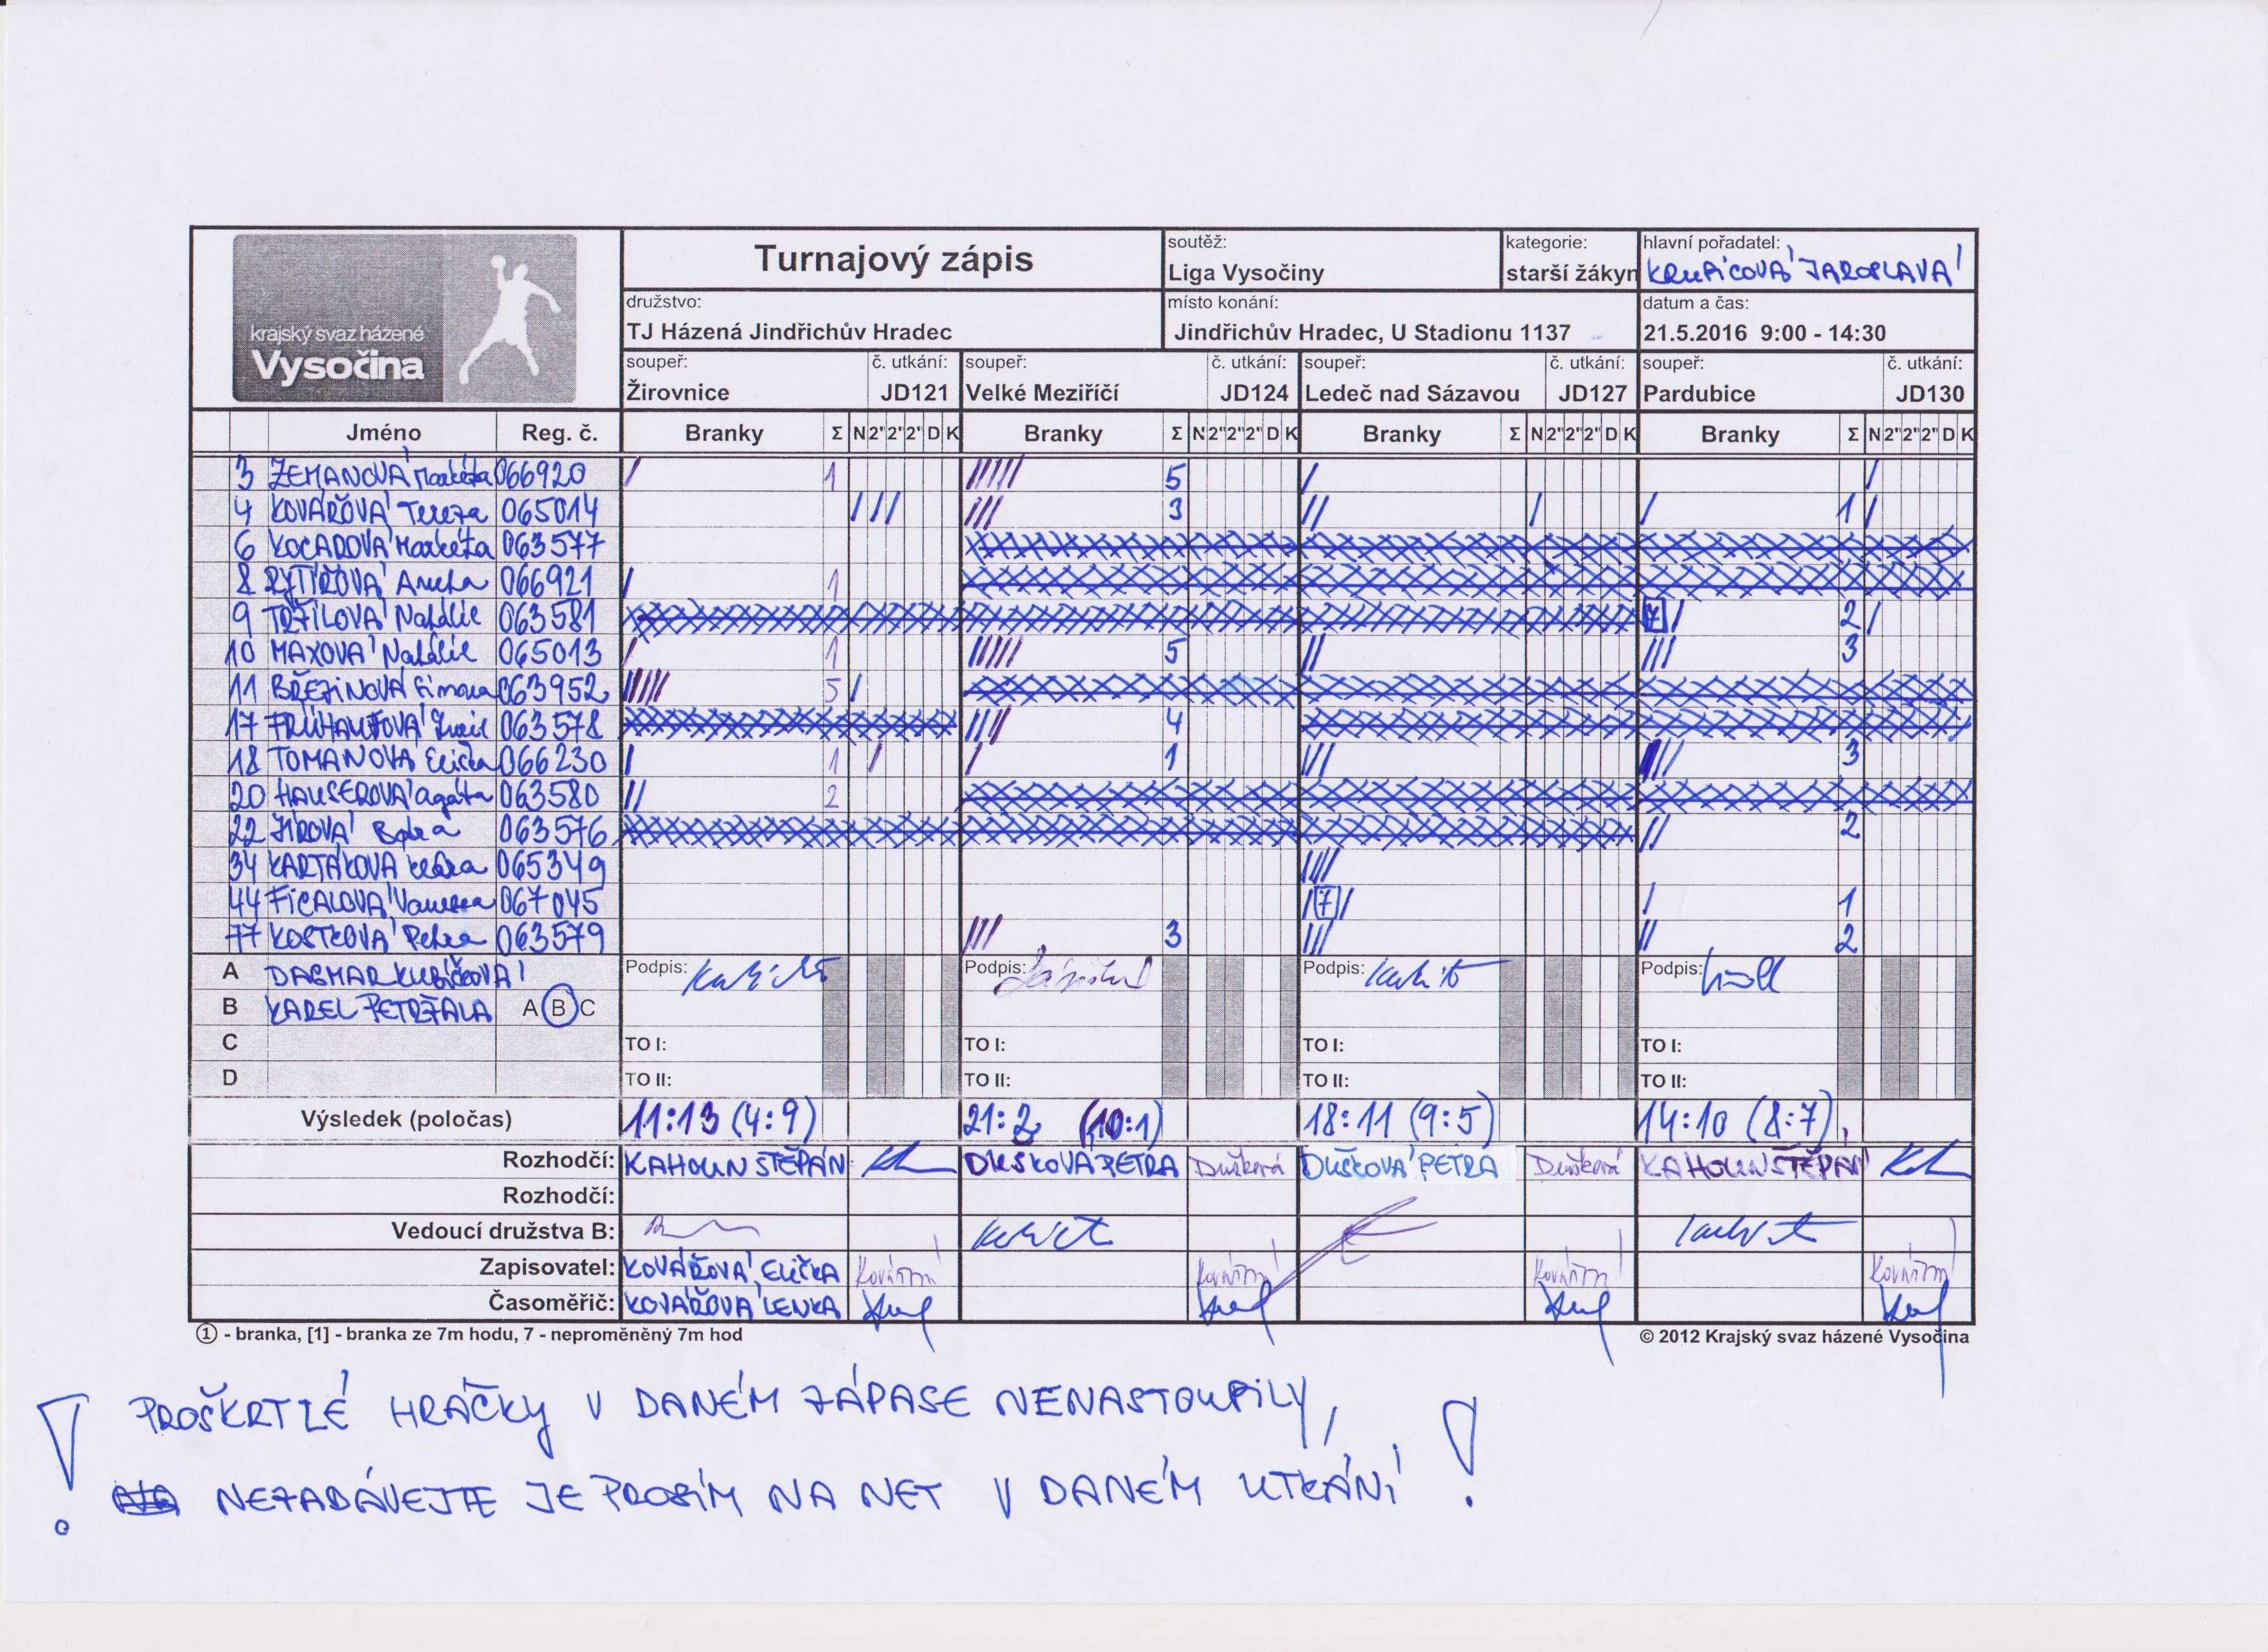 krajský svaz házené
Vysočina
Turnajový zápis
soutěž:
Liga Vysočiny
kategorie:
starší žákyn
hlavní pořadatel:
KRUPICOVÁ JAROSLAVA
družstvo:
TJ Házená Jindřichův Hradec
místo konání:
Jindřichův Hradec, U Stadionu 1137
datum a čas:
21.5.2016 9:00 - 14:30
soupeř: č. utkání: soupeř: č. utkání: soupeř: č. utkání: soupeř: č. utkání:
Žirovnice JD121 Velké Meziříčí JD124 Ledeč nad Sázavou JD127 Pardubice JD130
Jméno Reg. č. Branky Σ N 2" 2" 2" D K Branky Σ N 2" 2" 2" D K Branky Σ N 2" 2" 2" D K Branky Σ N 2" 2" 2" D K
3 ZEMANOVÁ Markéta 066920 / 1 ///// 5 / /
4 KOVÁŘOVÁ Tereza 065014 / / / /// 3 // / / 1 /
6 KOCAROVÁ Markéta 063577
8 RYTÍŘOVÁ Aneta 066921 / 1
9 Natálie 063581 7 / 2 /
10 MAXOVÁ Natálie 065013 / 1 ///// 5 // /// 3
11 BŘEZINOVÁ Simona 063952 ///// 5 /
17 063578 //// 4
18 TOMANOVÁ Eliška 066230 / 1 / / 1 /// 3
20 HAUSEROVÁ Agáta 063580 // 2
22 JÍROVÁ 063576 // 2
34 KARTÁKOVÁ Klára 065349 ////
44 FICALOVÁ Vanessa 067045 / 7 / / 1
77 KOSTKOVÁ Petra 063579 /// 3 /// // 2
A DAGMAR KUBÍČKOVÁ Podpis: Podpis: Podpis: Podpis:
B KAREL PETRŽALA A B C
C TO I: TO I: TO I: TO I:
D TO II: TO II: TO II: TO II:
Výsledek (poločas) 11:13 (4:9) 21:2 (10:1) 18:11 (9:5) 14:10 (8:7)
Rozhodčí: KAHOUN ŠTĚPÁN DUŠKOVÁ PETRA Dušková DUŠKOVÁ PETRA Dušková KAHOUN ŠTĚPÁN
Rozhodčí:
Vedoucí družstva B:
Zapisovatel: KOVÁŘOVÁ ELIŠKA Kovářová Kovářová Kovářová Kovářová
Časoměřič: KOVÁŘOVÁ LENKA
① - branka, [1] - branka ze 7m hodu, 7 - neproměněný 7m hod
© 2012 Krajský svaz házené Vysočina
! PROŠKRTLÉ HRÁČKY V DANÉM ZÁPASE NENASTOUPILY, !
NEZADÁVEJTE JE PROSÍM NA NET V DANÉM UTKÁNÍ